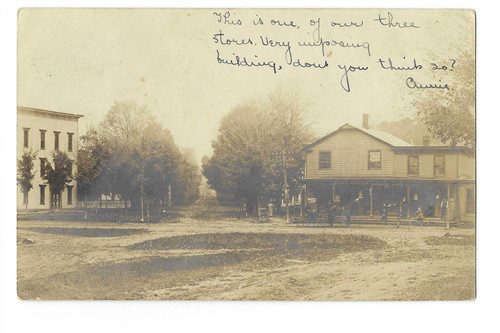 This is one, of our three
stores. Very imposing
building, dont you think so?
Annie